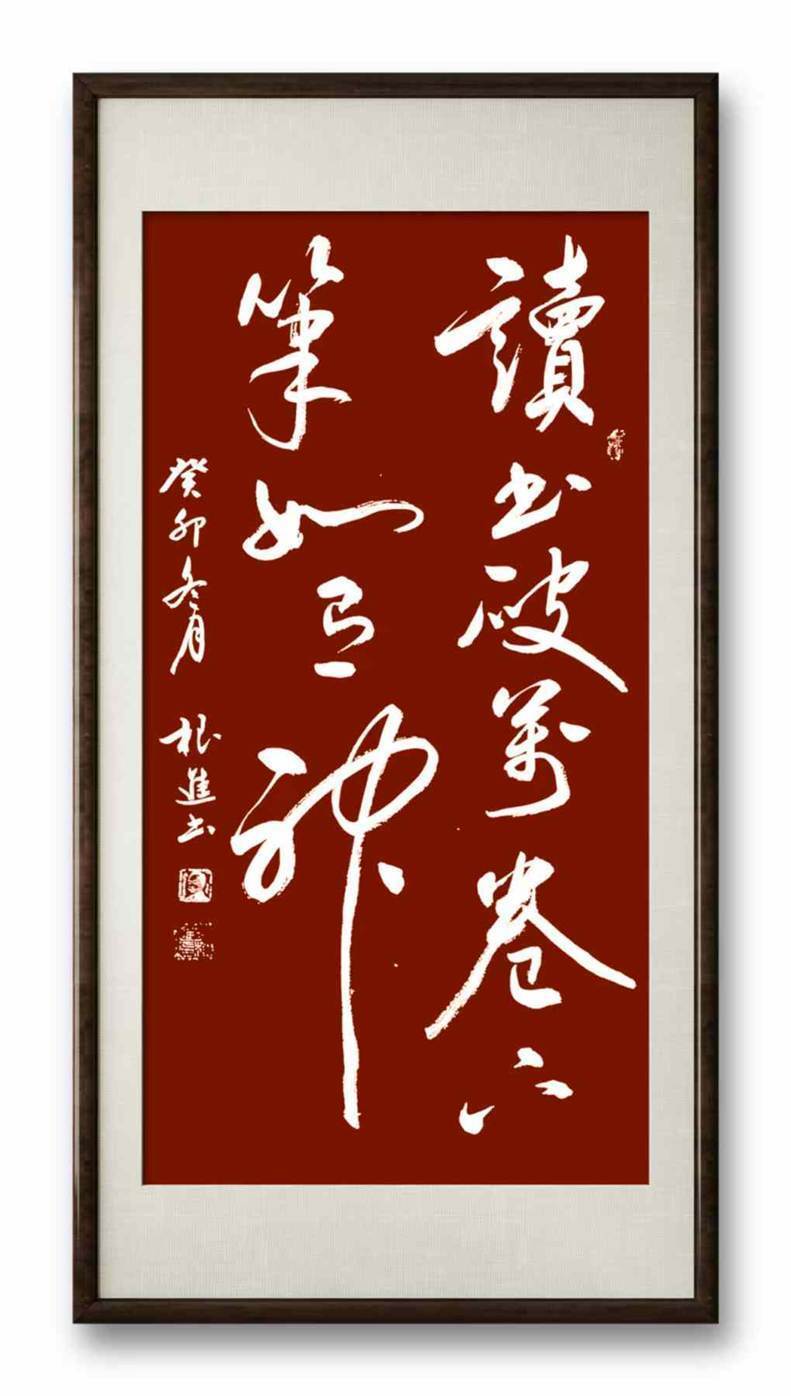 讀書破萬卷下
筆如有神
癸卯冬月 根進書